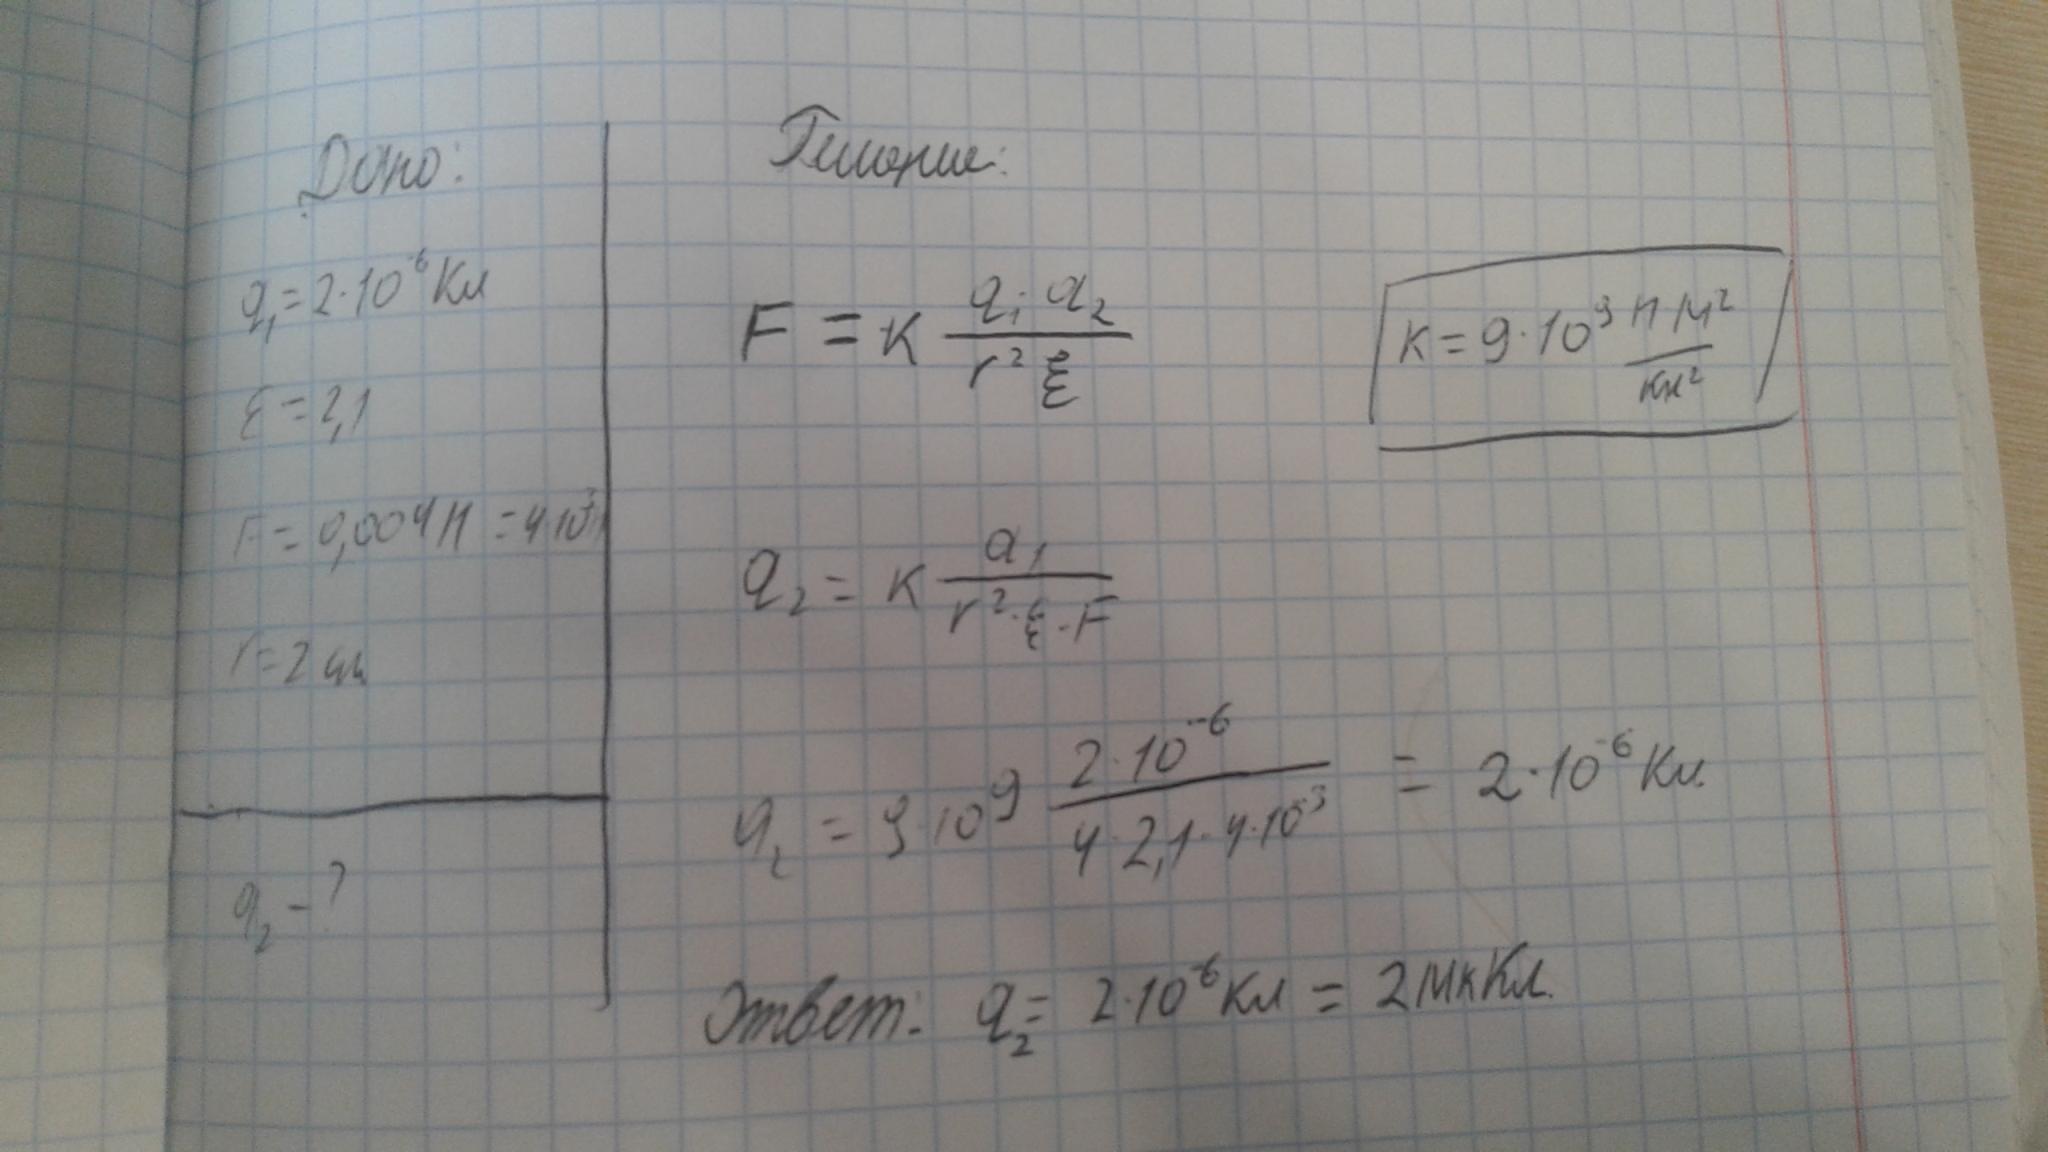 Дано:
q₁ = 2·10⁻⁶ Кл
ε = 2,1
F = 0,004 Н = 4·10⁻³ Н
r = 2 см
q₂ – ?
Решение:
F = k (q₁·q₂)/(r² ε)
k = 9·10⁹ Н·м²/Кл²
q₂ = k q₁/(r²·ε·F)
q₂ = 9·10⁹ (2·10⁻⁶)/(4·2,1·4·10⁻³) = 2·10⁻⁶ Кл.
Ответ: q₂ = 2·10⁻⁶ Кл = 2 мкКл.